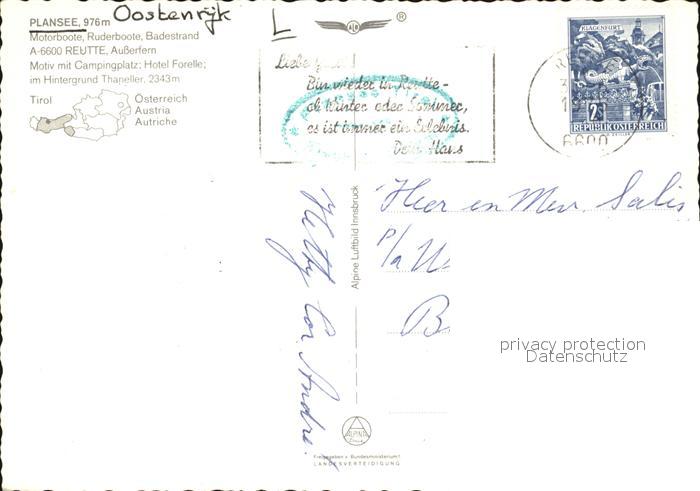 PLANSEE, 976m
Oostenrijk
Motorboote, Ruderboote, Badestrand
A-6600 REUTTE, Außerfern
Motiv mit Campingplatz; Hotel Forelle;
im Hintergrund Thaneller, 2343m
Tirol
Österreich
Austria
Autriche
L
®
Bin wieder in Reutte -
ob Winter oder Sommer,
es ist immer ein Erlebnis.
Dein Haus
KLAGENFURT
2S
REPUBLIK ÖSTERREICH
6600
Alpine Luftbild Innsbruck
Hetty Cor Andre.
Heer en Mev. Salis
P/a U
B
privacy protection
Datenschutz
ALPINA
Freigegeben v. Bundesministerium f.
LANDESVERTEIDIGUNG